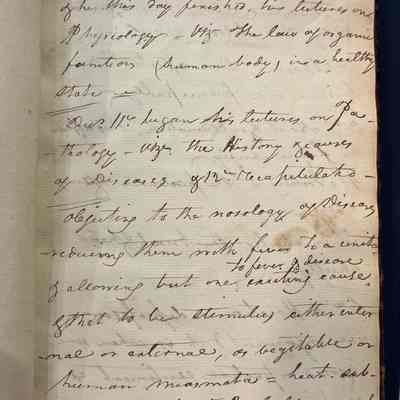 this day finished his lectures on
Physiology - Viz. the law of organic
function (human body) in a healthy
state -
Dec. 11th began his lectures on Pa-
thology - Viz. the History & causes
of Diseases, & 12th Recapitulated -
objecting to the nosology of Diseases
reducing them with fever to a unit
to fever & disease
& allowing but one exciting cause,
& that to be stimulus either inter
nal or external, as vegitable or
human miasmata = heat-sub-